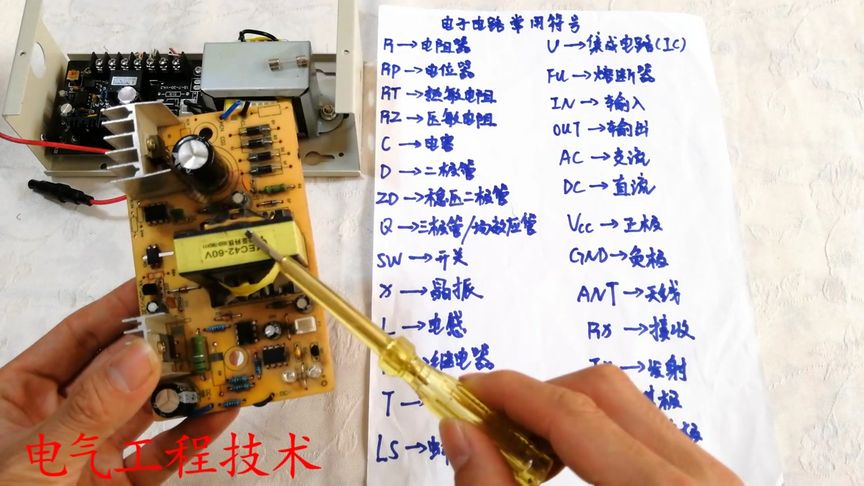 电子电路常用符号
R→电阻器
RP→电位器
RT→热敏电阻
RZ→压敏电阻
C→电容
D→二极管
ZD→稳压二极管
Q→三极管/场效应管
SW→开关
X→晶振
L→电感
继电器
T→
LS→
U→集成电路(IC)
FU→熔断器
IN→输入
OUT→输出
AC→交流
DC→直流
Vcc→正极
GND→负极
ANT→天线
RX→接收
→发射
极
极
EC42-60V
电气工程技术